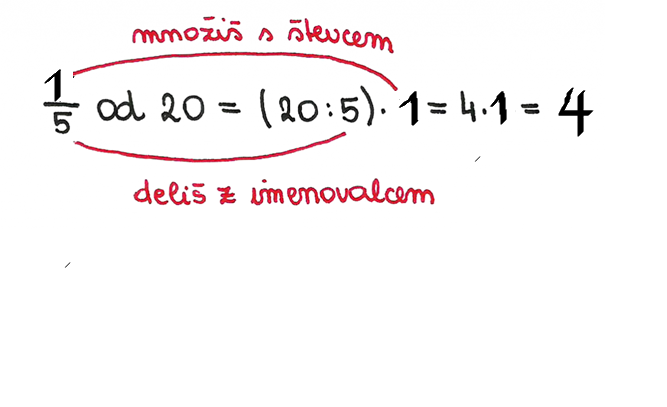 množiš s števcem
1/5 od 20 = (20:5)·1 = 4·1 = 4
deliš z imenovalcem